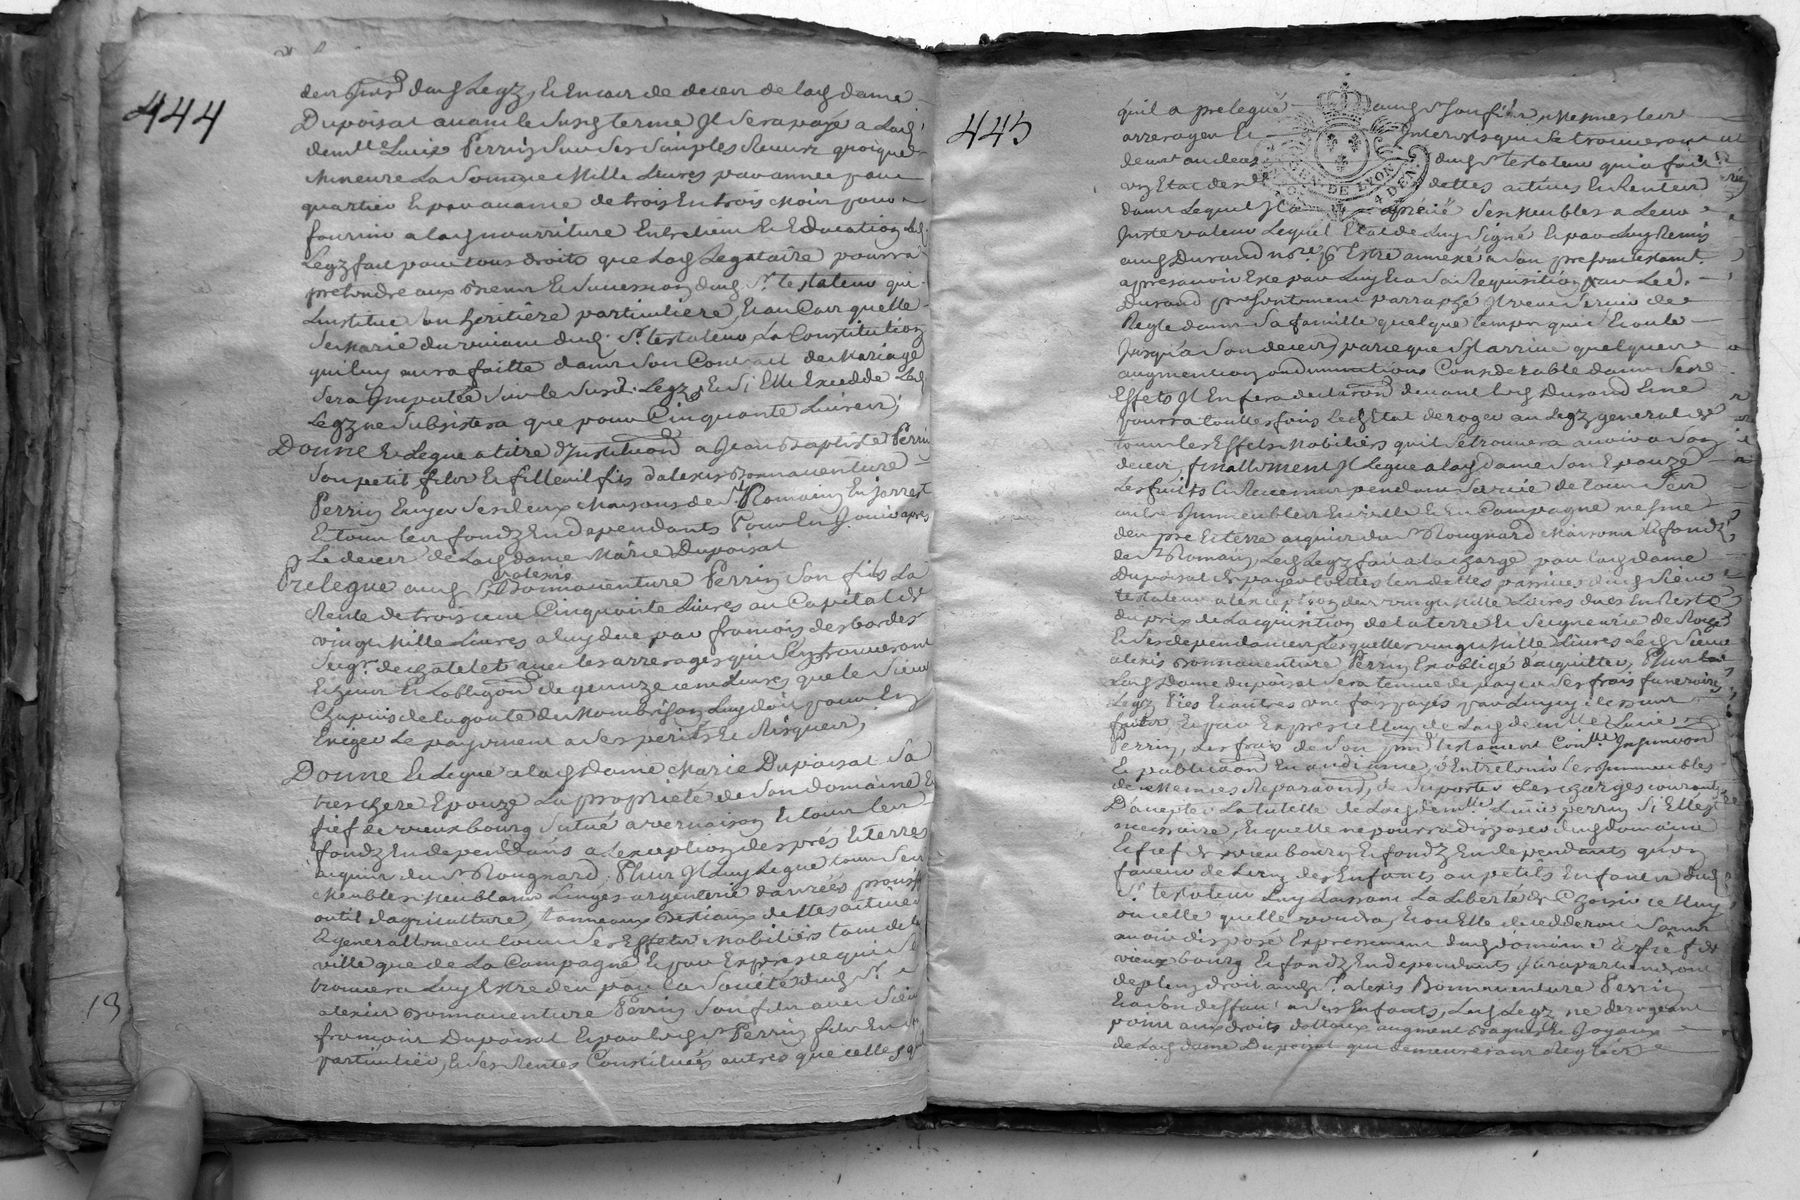 444
dud Legz, Et En cas de deces de lad dame
Dupoisat avant le Susd terme Il Sera payé a Lad
demlle Luce Perrin Sur Ses Simples Receus quoique
Mineure La Somme Mille Livres par année par
quartier Et par avance de trois En trois Mois pour
fournir a lad nourriture Entretien Et Education led
Legz fait pour tous droits que Lad Legataire pourra
pretendre aux Biens Et Succession dud Sr testateur qui
Linstitue Son heritiere particuliere, Et au Cas quelle
Se Marie du vivant dud Sr testateur La Constitution
quil luy aura faitte dans Son Contract de Mariage
Sera Imputée Sur le Susd Legz, Et Si Elle Excedde Led
Legz ne Subsistera que pour Cinquante Livres,
Donne Et Legue a titre d'Institution a Jean Baptiste Perrin
Son petit fils Et filleul fils d'alexis Bonnaventure
Perrin Ses deux Maisons de St Romain En Jarrest
Et tous les fondz En dependants Pour En Jouir apres
Le deces de Lad dame Marie Dupoisat
Prelegue aud Sr alexis Bonnaventure Perrin Son fils La
Rente de trois cent Cinquante Livres au Capital de
vingt Mille Livres a luy due par françois desbordes
Seigr de Chatelet avec les arrerages qui Sen trouveront
Et Lobligaon de quinze cent Livres que le Sieur
Chapuis de lagoute de Montbrison Luy doit pour En
Exiger Le payement a Ses perils Et Risques,
Donne Et Legue a lad Dame Marie Dupoisat Sa
tres chere Epouze La proprieté de Son domaine Et
fief de vieux bourg Situé a vernaison Et tous les
fondz En dependans a Lexception des prés Et terres
acquis du Sr Rougnard, Plus Il Luy Legue tous Ses
Meubles Meublans Linges argenterie danrées
outil d'agriculture, tonneaux Bestiaux dettes actives
Et generallement tous Ses Effets Mobiliers tant de la
ville que de La Campagne Et par Exprés ce qui Se
trouvera Luy Estre deu par la Societé dud Sr
alexis Bonnaventure Perrin Son fils avec Sieur
françois Dupoisat Et par led Sr Perrin fils En
particulier, Et Ses Rentes Constituées autres que celles
445
quil a prelegué aud Sr Son fils, Mesmes les
arrerages Et Interests qui Se trouveront
deus au deces dud Sr testateur qui a fait
un Etat de Ses dettes actives Et Rentes
dans Lequel Il a aprecié Ses Meubles a Leur
Juste valeur Lequel Etat de Luy Signé Et par Luy Remis
aud Durand nore pr Estre annexé a Son present testamt
apres avoir Eté par Luy Et a Sa Requisition par Led
Durand presentement parraphé Il veut Servir de
Regle dans Sa famille quelque temps qui s'Ecoule
Jusqu'a Son deces, parceque S'il arrive quelques
augmention ou diminutions Considerable dans Ses
Effets Il En fera declaraon devant led Durand Et ne
pourra touttesfois led Etat deroger au Legz general de
tous les Effets Mobiliers quil Se trouvera avoir a Son
deces, finallement Il Legue a lad dame Son Epouze
Les fruits Et Revenus pendant Sa vie de tous Ses
autres Immeubles En ville Et En Campagne mesme
des pré Et terre acquis du Sr Rougnard Maisons Et fondz
de St Romain, Led Legz fait a la charge par lad dame
Dupoisat de payer touttes les dettes passives dud Sieur
testateur a lexception des vingt Mille Livres dues En Reste
du prix de Lacquisition de la terre Et Seigneurie de
Et Ses dependances Lesquelles vingt Mille Livres Led Sieur
alexis Bonnaventure Perrin Est obligé d'acquitter, Plus
Lad Dame dupoisat Sera tenue de payer Ses frais funeraires
Legz Pies Et autres une fois payés par Luy cy dessus
faits, Et par Exprés celluy de Lad demlle Lucie
Perrin, Les frais de Son pnt testament Conlle Insinuaon
Et publicaon En audiance, d'Entretenir les Immeubles
de Menües Reparaons, de Suporter Les charges courantes
D'accepter La tutelle de Lad demlle Lucie perrin Si Elle est
necessaire, Et quelle ne pourra disposer dud domaine
Et fief de vieubourg Et fondz En dependants quen
faveur de Lun des Enfants ou petits Enfans dud
Sr testateur Luy Laissant La Liberté de Choisir celluy
ou celle quelle voudra, Et ou Elle decedderoit Sans
avoir disposé Expressement dud domaine Et fief de
vieux bourg Et fondz En dependants Il apartiendront
de plein droit aud Sr alexis Bonnaventure Perrin
Et a Son deffaut a Ses Enfants, Led Legz ne derogeant
point aux droits dottaux augment Bagues Et Joyaux
de Lad dame Dupoisat qui demeureront Reglées